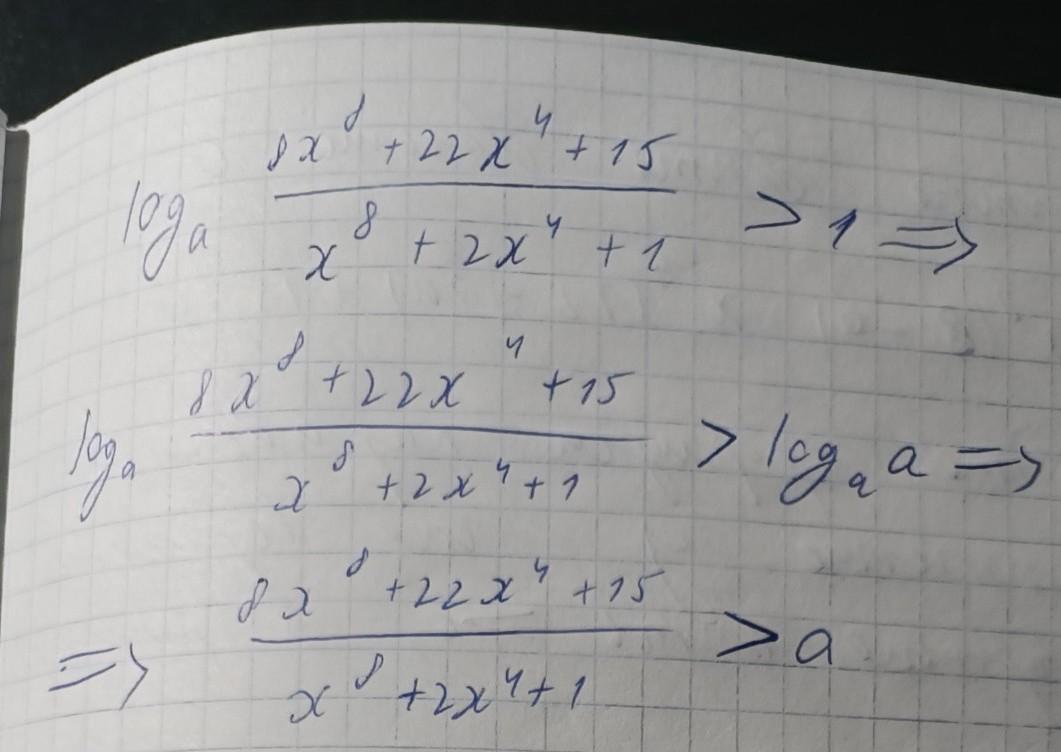 log_a (8x^8 + 22x^4 + 15)/(x^8 + 2x^4 + 1) > 1 ⇒
log_a (8x^8 + 22x^4 + 15)/(x^8 + 2x^4 + 1) > log_a a ⇒
⇒ (8x^8 + 22x^4 + 15)/(x^8 + 2x^4 + 1) > a